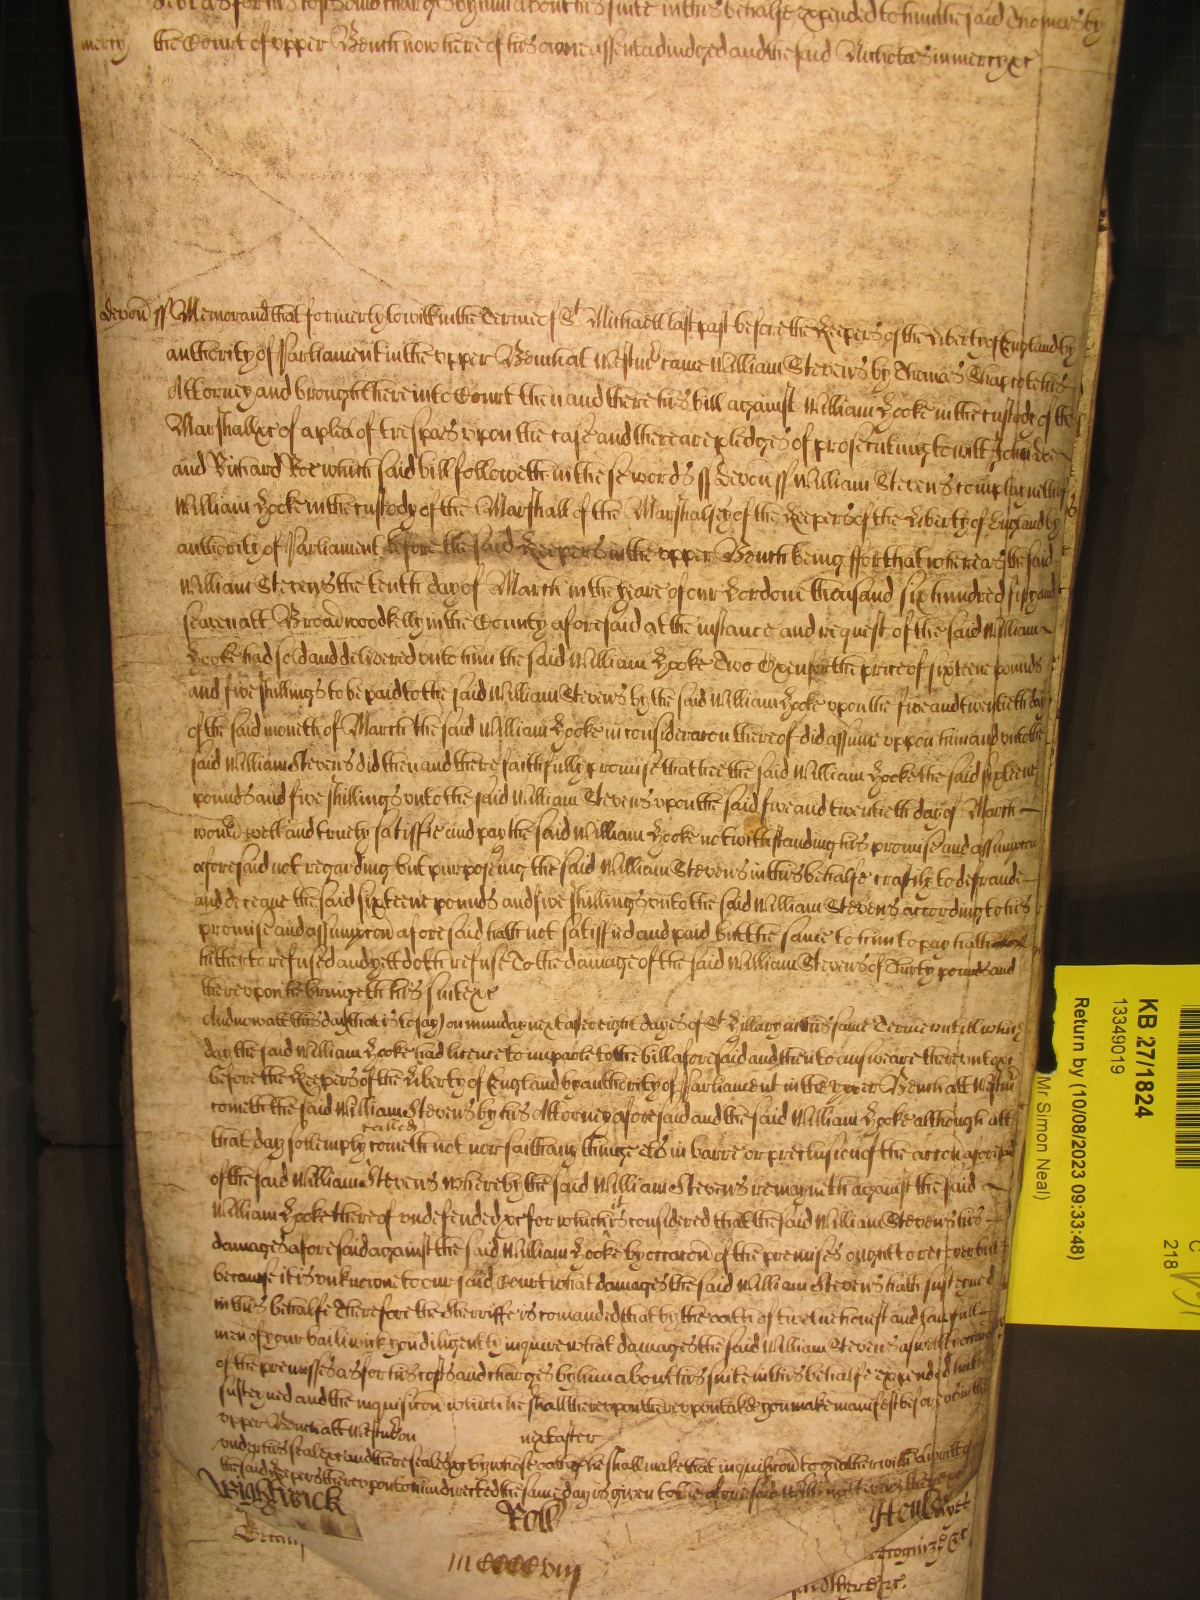 for his costs and charges by him about his suite in this behalfe expended to him the said Thomas by
mercy the Court of upper Bench now here of his owne assent adiudged and the said Nicholas in mercy &c
devon ss Memorand that formerly to witt in the Terme of St Michaell last past before the Keepers of the Liberty of England by
authority of Parliament in the upper Bench at Westmr came William Stevens by Thomas Shapcote his
Attorney and brought here into Court then and there his bill against William Hooke in the custody of the
Marshall &c of a plea of trespas upon the case and there are pledges of prosecuting to witt John Doe
and Richard Roe which said bill followeth in these words ss Devon ss William Stevens complayneth of
William Hooke in the custody of the Marshall of the Marshalsey of the Keepers of the Liberty of England by
authority of Parliament before the said Keepers in the upper Bench being ffor that whereas the said
William Stevens the tenth day of March in the yeare of our Lord one thousand six hundred fifty and
seaven att Broadwoodkelly in the County aforesaid at the instance and request of the said William
Hooke had sold and delivered unto him the said William Hooke Two Oxen for the price of sixteene pounds
and five shillings to be paid to the said William Stevens by the said William Hooke upon the five and twentieth day
of the said moneth of March the said William Hooke in consideracon thereof did assume uppon him and unto the
said William Stevens did then and there faithfully promise that hee the said William Hooke the said sixteene
pounds and five shillings unto the said William Stevens upon the said five and twentieth day of March
would well and truely satisfie and pay the said William Hooke notwithstanding his promise and assumpcon
aforesaid not regarding but purposeing the said William Stevens in this behalfe craftily to defraude
and deceave the said sixteene pounds and five shillings unto the said William Stevens according to his
promise and assumpcon aforesaid hath not satisfied and paid but the same to him to pay hath
hitherto refused and yett doth refuse To the damage of the said William Stevens of Thirty pounds and
thereupon he bringeth this suite &c
And now att this day (that is to say) on munday next after eight dayes of St Hillary in this same Terme untill which
day the said William Hooke had licence to imparle to the bill aforesaid and then to answeare thereunto &c
before the Keepers of the Liberty of England by authority of Parliament in the upper Bench att Westmr
cometh the said William Stevens by his Attorney aforesaid and the said William Hooke although att
that day sollemply called cometh not nor saith any thinge els in barre or preclusion of the accon aforesaid
of the said William Stevens whereby the said William Stevens remayneth against the said
William Hooke thereof undefended &c for which it is considered that the said William Stevens his
damages aforesaid against the said William Hooke by occacon of the premises ought to recover but
because it is unknowne to our said Court what damages the said William Stevens hath susteyned
in this behalfe Therefore the Sherriffe is comanded that by the oath of twelve honest and lawfull
men of your bailiwick you diligently inquire what damages the said William Stevens aswell
of the premisses as for his costs and charges by him about his suite in this behalfe expended hath
susteyned and the inquisicon which he shall thereupon thereupon take you make manifest before us in the
upper Bench att Westmr on next after
under his seale &c and the seales &c by whose oath &c he shall make that inquisicon together with
the said Keepers thereupon to him directed the same day is given to the aforesaid William Stevens there &c
Wightwick Roll
m CCCC viii